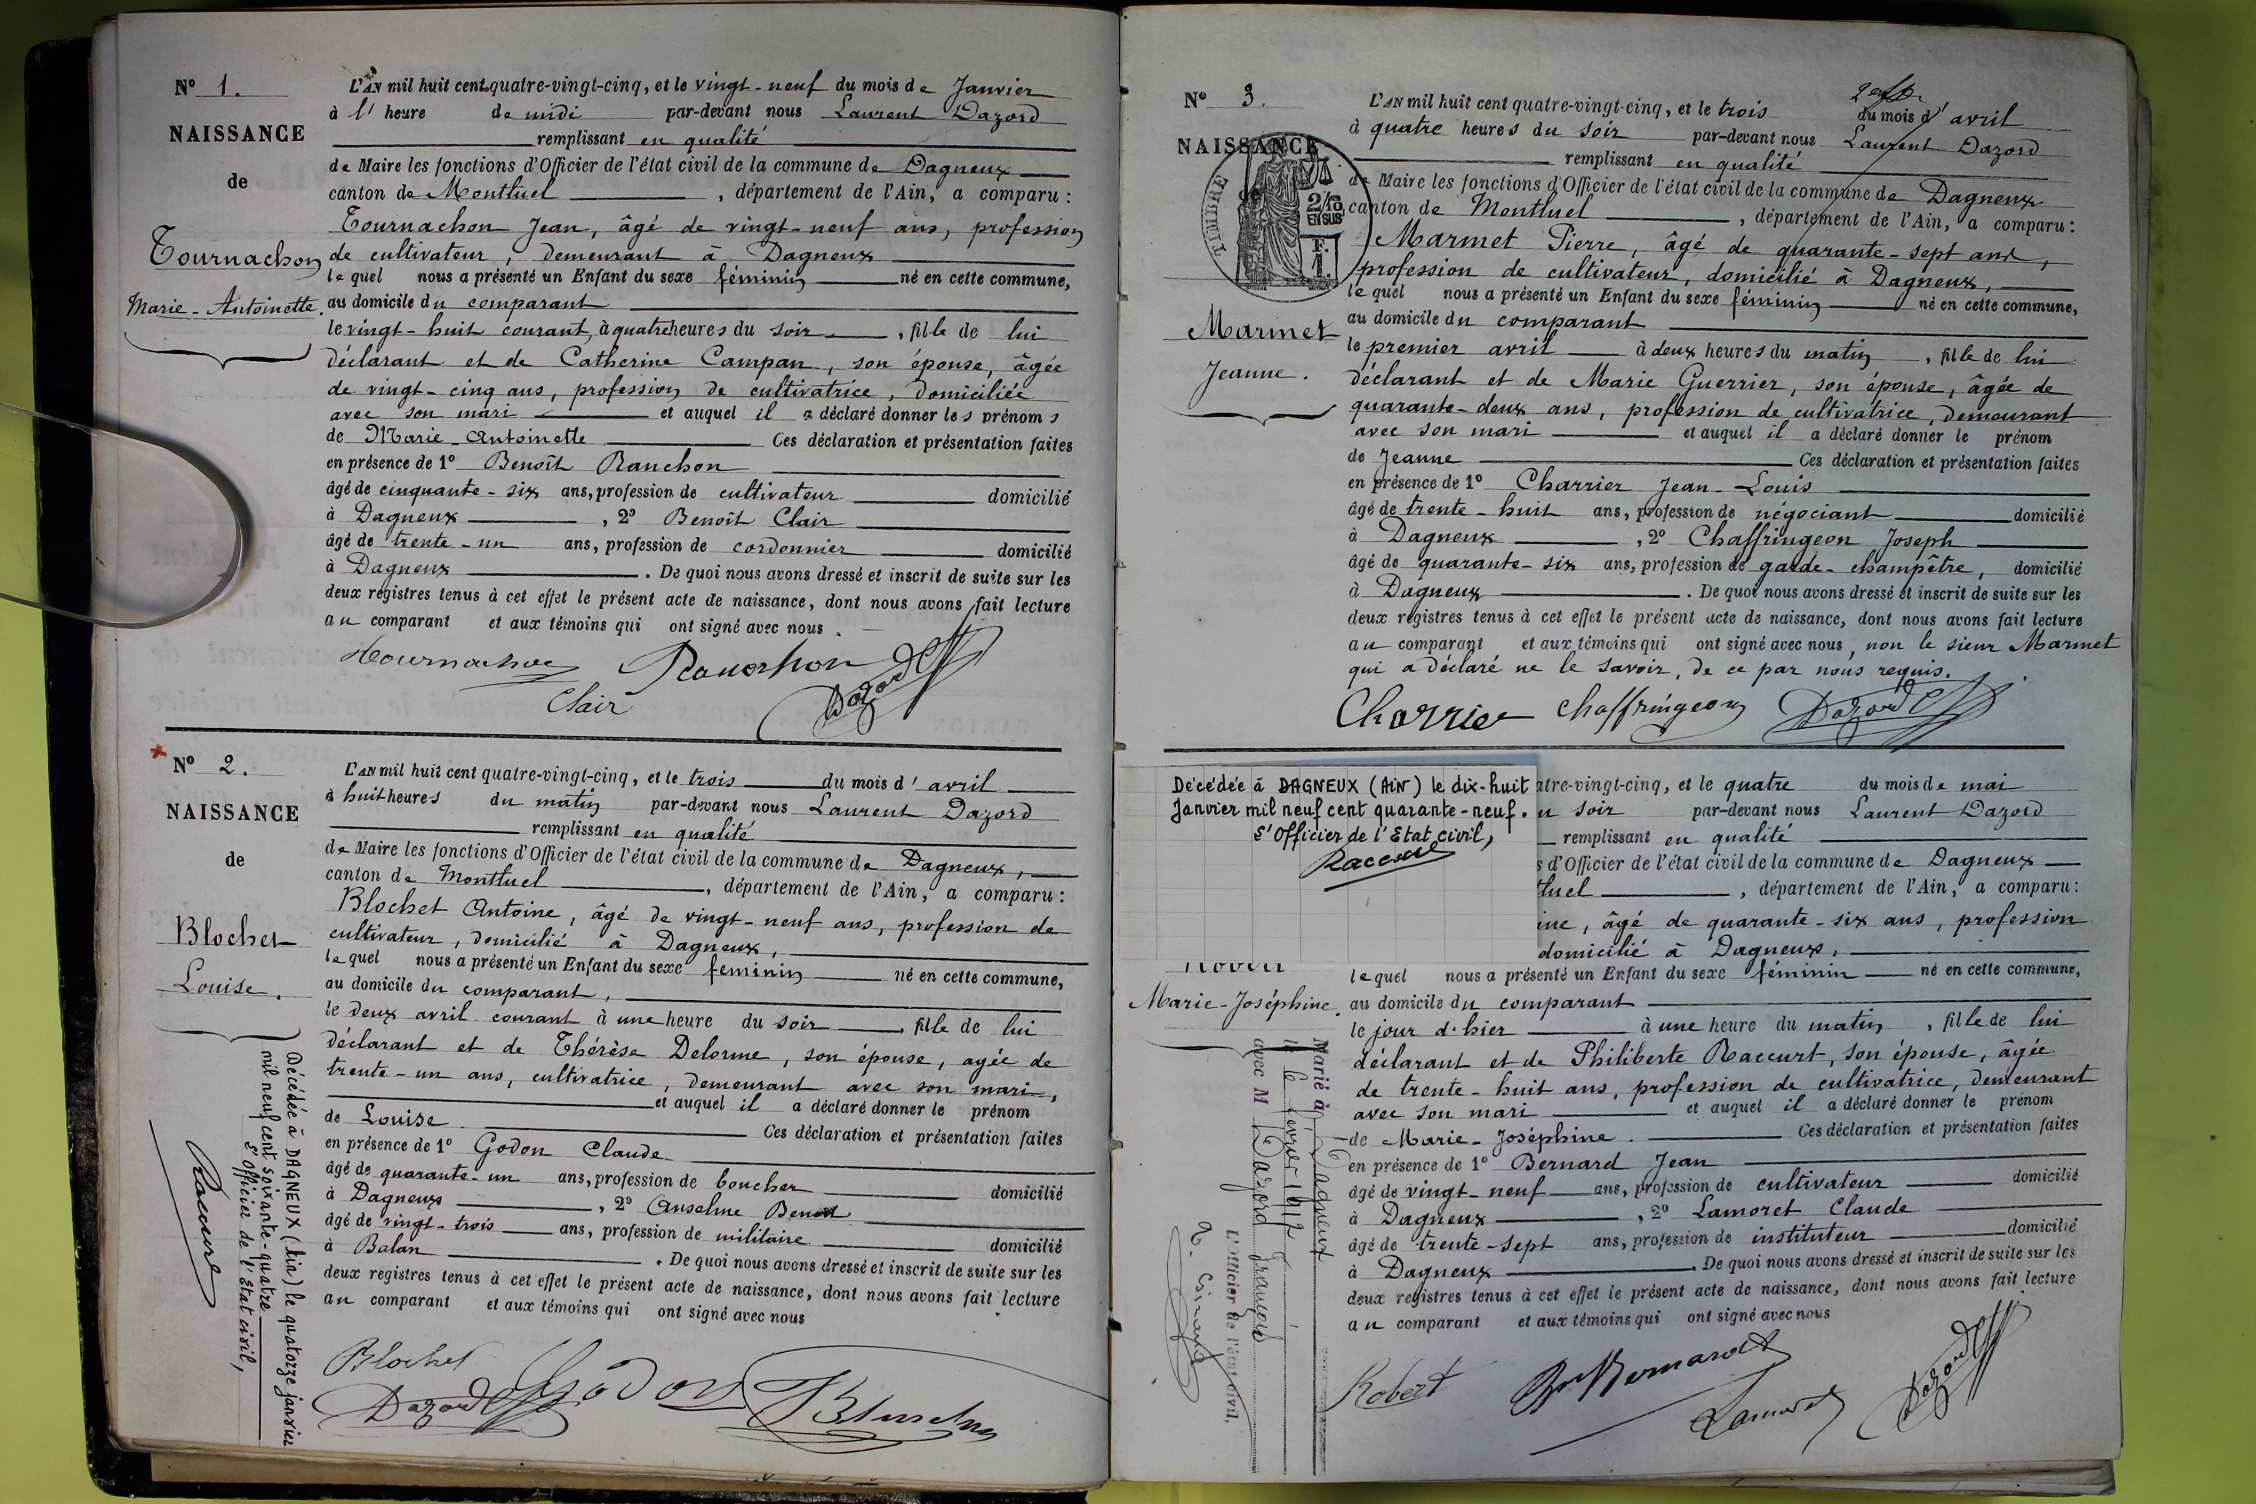 Nº 1.
NAISSANCE
de
Tournachon
Marie-Antoinette.
L'AN mil huit cent quatre-vingt-cinq, et le vingt-neuf du mois de Janvier
à l'heure de midi par-devant nous Laurent Dazord
remplissant en qualité
de Maire les fonctions d'Officier de l'état civil de la commune de Dagneux
canton de Montluel, département de l'Ain, a comparu :
Tournachon Jean, âgé de vingt-neuf ans, profession
de cultivateur, demeurant à Dagneux
lequel nous a présenté un Enfant du sexe féminin né en cette commune,
au domicile du comparant
le vingt-huit courant, à quatre heures du soir, fille de lui
déclarant et de Catherine Campan, son épouse, âgée
de vingt-cinq ans, profession de cultivatrice, domiciliée
avec son mari et auquel il a déclaré donner les prénoms
de Marie-Antoinette Ces déclaration et présentation faites
en présence de 1º Benoît Ranchon
âgé de cinquante-six ans, profession de cultivateur domicilié
à Dagneux, 2º Benoît Clair
âgé de trente-un ans, profession de cordonnier domicilié
à Dagneux. De quoi nous avons dressé et inscrit de suite sur les
deux registres tenus à cet effet le présent acte de naissance, dont nous avons fait lecture
au comparant et aux témoins qui ont signé avec nous.
Tournachon Ranchon
Clair Dazord
Nº 2.
NAISSANCE
de
Blochet
Louise.
L'AN mil huit cent quatre-vingt-cinq, et le trois du mois d'avril
à huit heures du matin par-devant nous Laurent Dazord
remplissant en qualité
de Maire les fonctions d'Officier de l'état civil de la commune de Dagneux,
canton de Montluel, département de l'Ain, a comparu :
Blochet Antoine, âgé de vingt-neuf ans, profession de
cultivateur, domicilié à Dagneux,
lequel nous a présenté un Enfant du sexe féminin né en cette commune,
au domicile du comparant,
le deux avril courant à une heure du soir, fille de lui
déclarant et de Thérèse Delorme, son épouse, agée de
trente-un ans, cultivatrice, demeurant avec son mari,
et auquel il a déclaré donner le prénom
de Louise. Ces déclaration et présentation faites
en présence de 1º Godon Claude
âgé de quarante-un ans, profession de boucher domicilié
à Dagneux, 2º Anselme Benoît
âgé de vingt-trois ans, profession de militaire domicilié
à Balan. De quoi nous avons dressé et inscrit de suite sur les
deux registres tenus à cet effet le présent acte de naissance, dont nous avons fait lecture
au comparant et aux témoins qui ont signé avec nous
Blochet
Dazord Godon
Décédée à DAGNEUX (Ain) le quatorze janvier
mil neuf cent soixante-quatre
L'Officier de l'Etat civil,
Nº 3.
NAISSANCE
de
TIMBRE
2/10
EN SUS
F.
1.
Marmet
Jeanne.
L'AN mil huit cent quatre-vingt-cinq, et le trois du mois d'avril
à quatre heures du soir par-devant nous Laurent Dazord
remplissant en qualité
de Maire les fonctions d'Officier de l'état civil de la commune de Dagneux
canton de Montluel, département de l'Ain, a comparu :
Marmet Pierre, âgé de quarante-sept ans,
profession de cultivateur, domicilié à Dagneux,
lequel nous a présenté un Enfant du sexe féminin né en cette commune,
au domicile du comparant
le premier avril à deux heures du matin, fille de lui
déclarant et de Marie Guerrier, son épouse, âgée de
quarante-deux ans, profession de cultivatrice, demeurant
avec son mari et auquel il a déclaré donner le prénom
de Jeanne Ces déclaration et présentation faites
en présence de 1º Charrier Jean-Louis
âgé de trente-huit ans, profession de négociant domicilié
à Dagneux, 2º Chaffringeon Joseph
âgé de quarante-six ans, profession de garde-champêtre, domicilié
à Dagneux. De quoi nous avons dressé et inscrit de suite sur les
deux registres tenus à cet effet le présent acte de naissance, dont nous avons fait lecture
au comparant et aux témoins qui ont signé avec nous, non le sieur Marmet
qui a déclaré ne le savoir, de ce par nous requis.
Charrier Chaffringeon Dazord
Décédée à DAGNEUX (Ain) le dix-huit
Janvier mil neuf cent quarante-neuf.
L'Officier de l'Etat civil,
Marie-Joséphine.
atre-vingt-cinq, et le quatre du mois de mai
u soir par-devant nous Laurent Dazord
remplissant en qualité
s d'Officier de l'état civil de la commune de Dagneux
tluel, département de l'Ain, a comparu :
ine, âgé de quarante-six ans, profession
domicilié à Dagneux,
lequel nous a présenté un Enfant du sexe féminin né en cette commune,
au domicile du comparant
le jour d'hier à une heure du matin, fille de lui
déclarant et de Philiberte Raccurt, son épouse, âgée
de trente-huit ans, profession de cultivatrice, demeurant
avec son mari et auquel il a déclaré donner le prénom
de Marie-Joséphine. Ces déclaration et présentation faites
en présence de 1º Bernard Jean
âgé de vingt-neuf ans, profession de cultivateur domicilié
à Dagneux, 2º Lamoret Claude
âgé de trente-sept ans, profession de instituteur domicilié
à Dagneux. De quoi nous avons dressé et inscrit de suite sur les
deux registres tenus à cet effet le présent acte de naissance, dont nous avons fait lecture
au comparant et aux témoins qui ont signé avec nous
Robert Bernard
Lamoret Dazord
Marié à Dagneux
le 6 février 1912
avec M Dazord François
L'Officier de l'état civil,